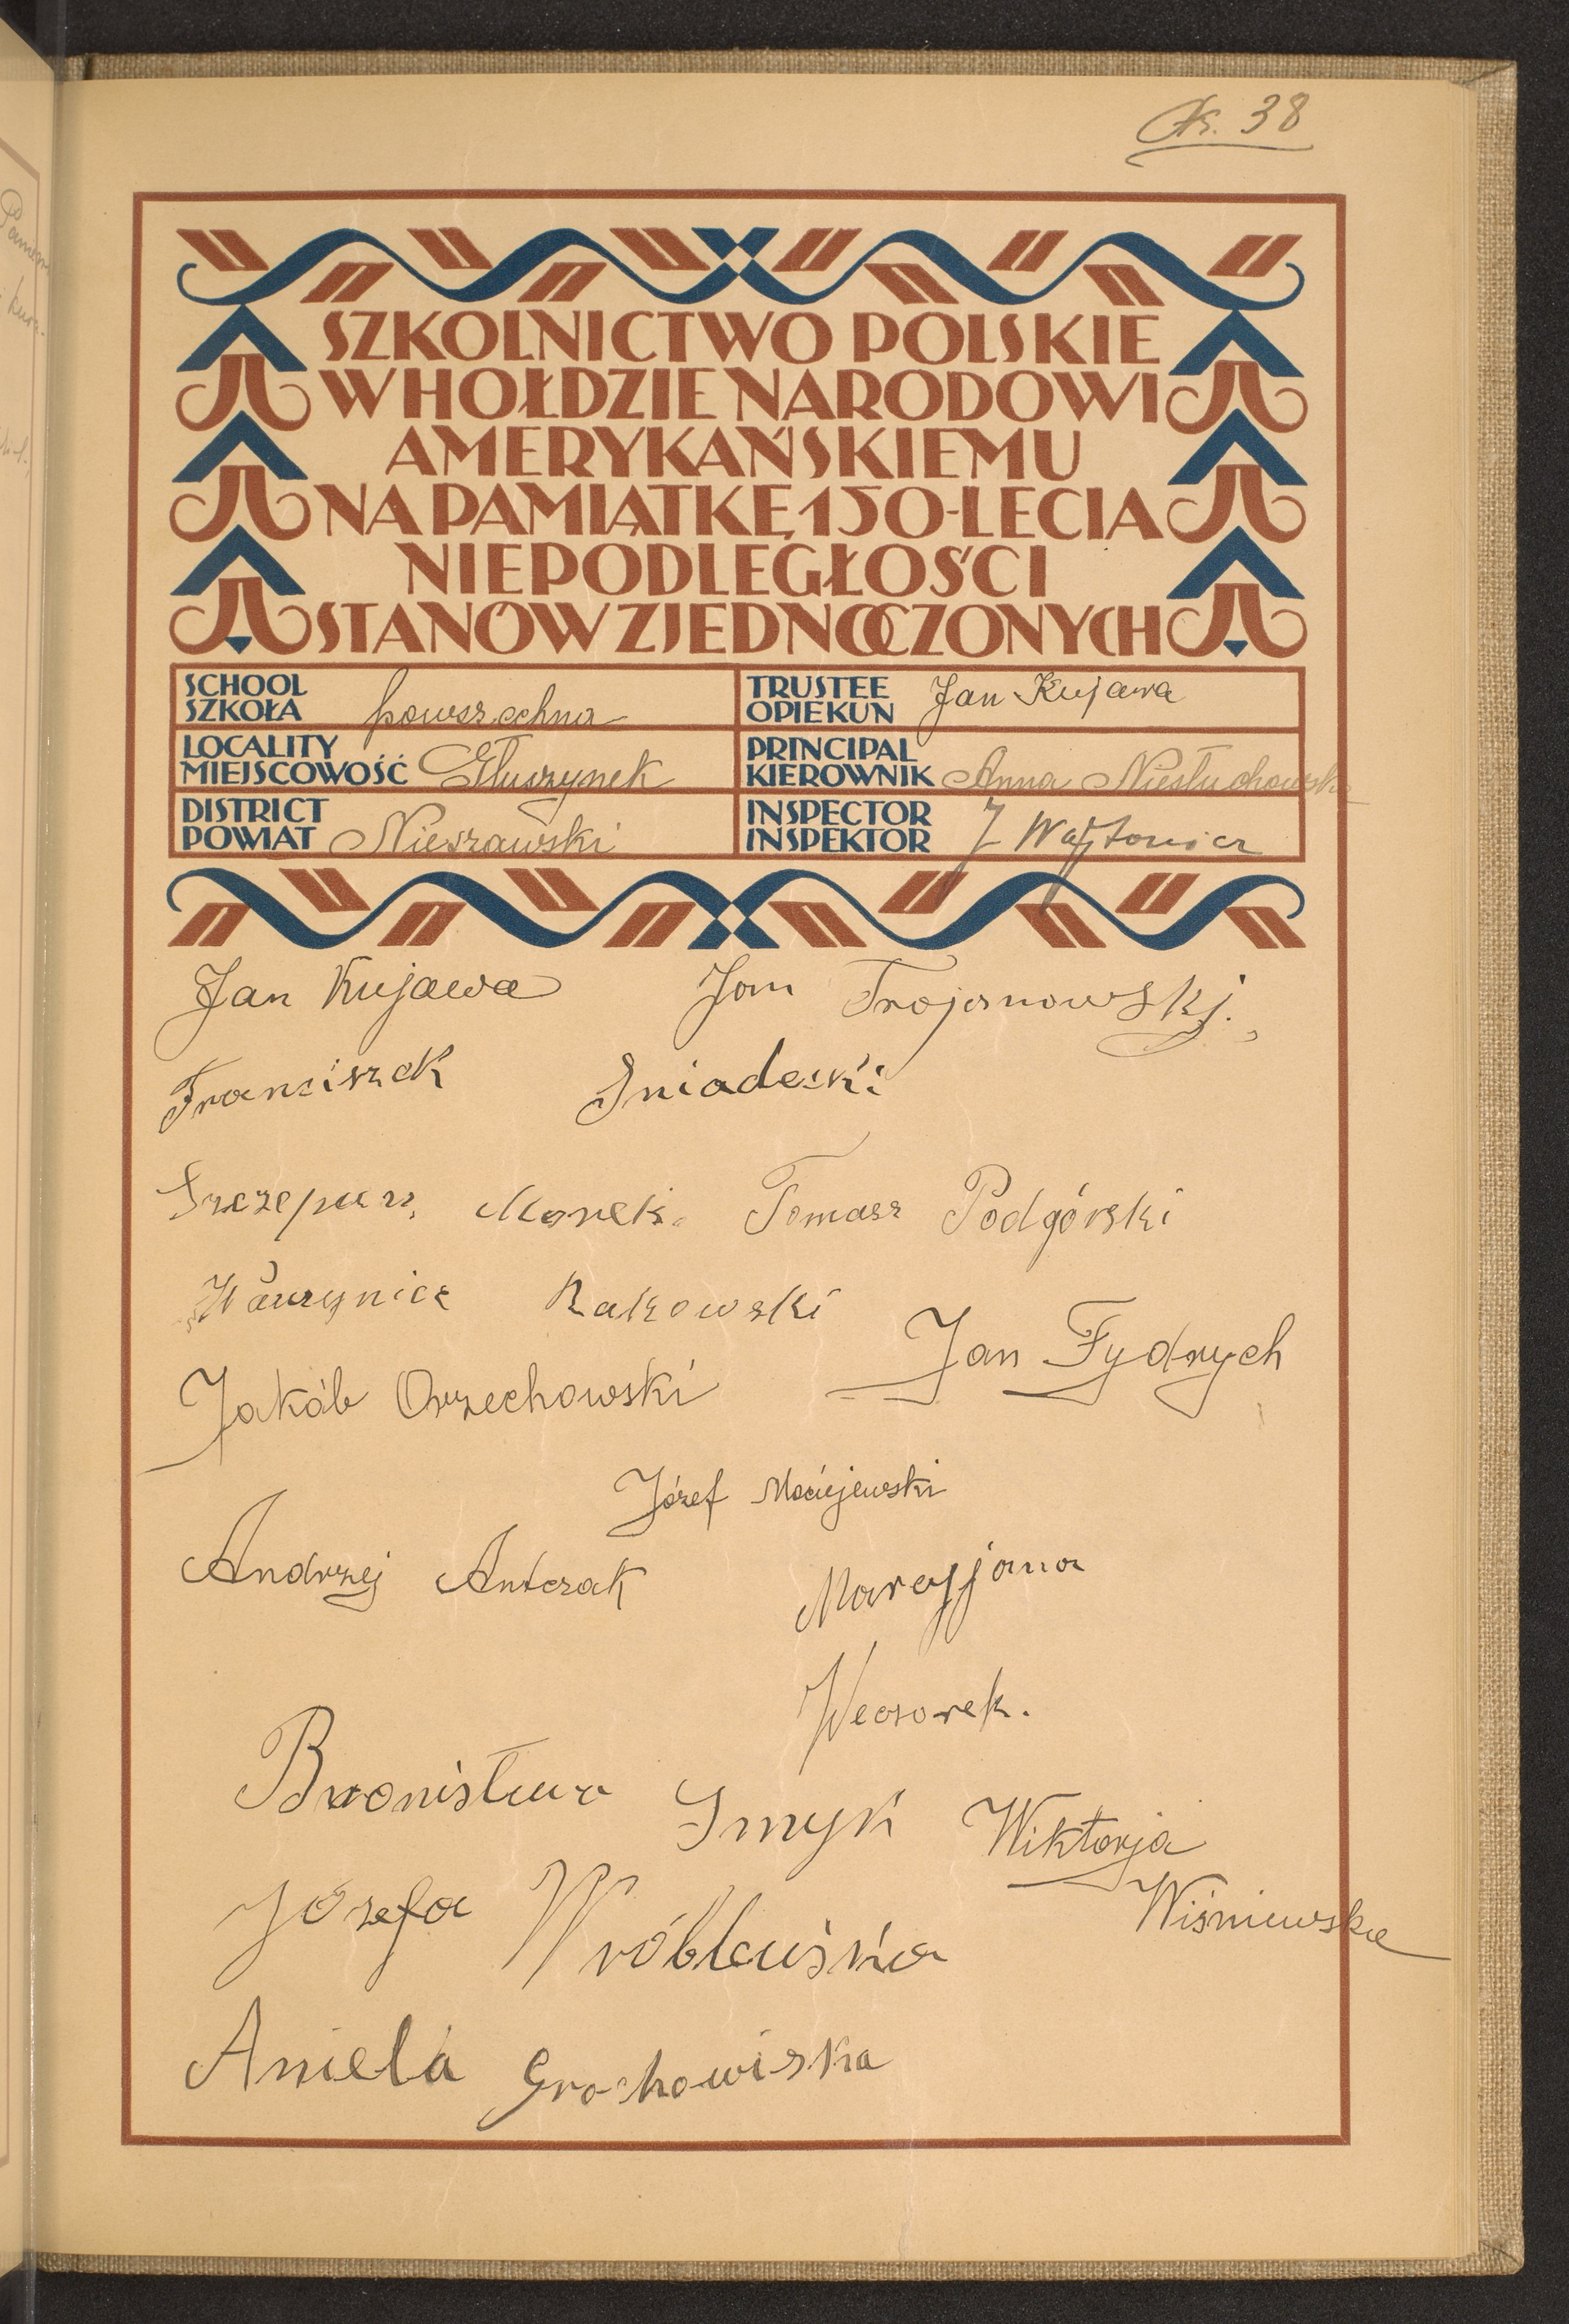 38
SZKOLNICTWO POLSKIE
W HOŁDZIE NARODOWI
AMERYKAŃSKIEMU
NA PAMIĄTKĘ 150-LECIA
NIEPODLEGŁOŚCI
STANÓW ZJEDNOCZONYCH
SCHOOL
SZKOŁA powszechna
TRUSTEE
OPIEKUN Jan Kujawa
LOCALITY
MIEJSCOWOŚĆ Głuszynek
PRINCIPAL
KIEROWNIK Anna Niesłuchowska
DISTRICT
POWIAT Nieszawski
INSPECTOR
INSPEKTOR J Wójtowicz
Jan Kujawa Jan Trojanowskj.
Franciszek Sniadecki
Szczepan, Marek. Tomasz Podgórski
Wawrzyniec Rakowski
Jan Fydrych
Jakób Orzechowski
Józef Maciejewski
Andrzej Antczak
Maryjana
Weczorek.
Bronisława Smyk Wiktorja
Wiśniewska
Józefa Wróbleuska
Aniela Grochowiska